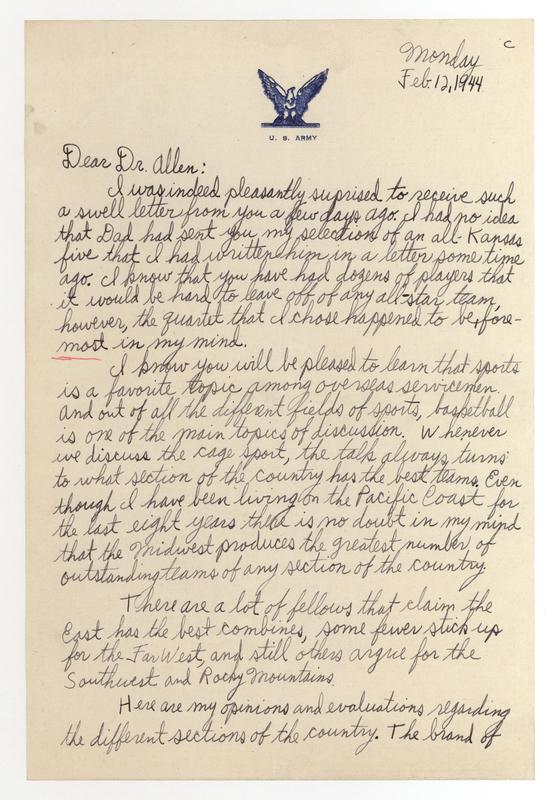 c
Monday
Feb. 12, 1944
U. S. ARMY
Dear Dr. Allen:
I was indeed pleasantly suprised to receive such
a swell letter from you a few days ago. I had no idea
that Dad had sent you my selection of an all-Kansas
five that I had written him in a letter some time
ago. I know that you have had dozens of players that
it would be hard to leave off of any all-star team,
however, the quartet that I chose happened to be fore-
most in my mind.
I know you will be pleased to learn that sports
is a favorite topic among overseas servicemen.
And out of all the different fields of sports, basketball
is one of the main topics of discussion. Whenever
we discuss the cage sport, the talk always turns
to what section of the country has the best teams. Even
though I have been living on the Pacific Coast for
the last eight years there is no doubt in my mind
that the Midwest produces the greatest number of
outstanding teams of any section of the country.
There are a lot of fellows that claim the
East has the best combines, some fewer stick up
for the Far West, and still others argue for the
Southwest and Rocky Mountains.
Here are my opinions and evaluations regarding
the different sections of the country. The brand of